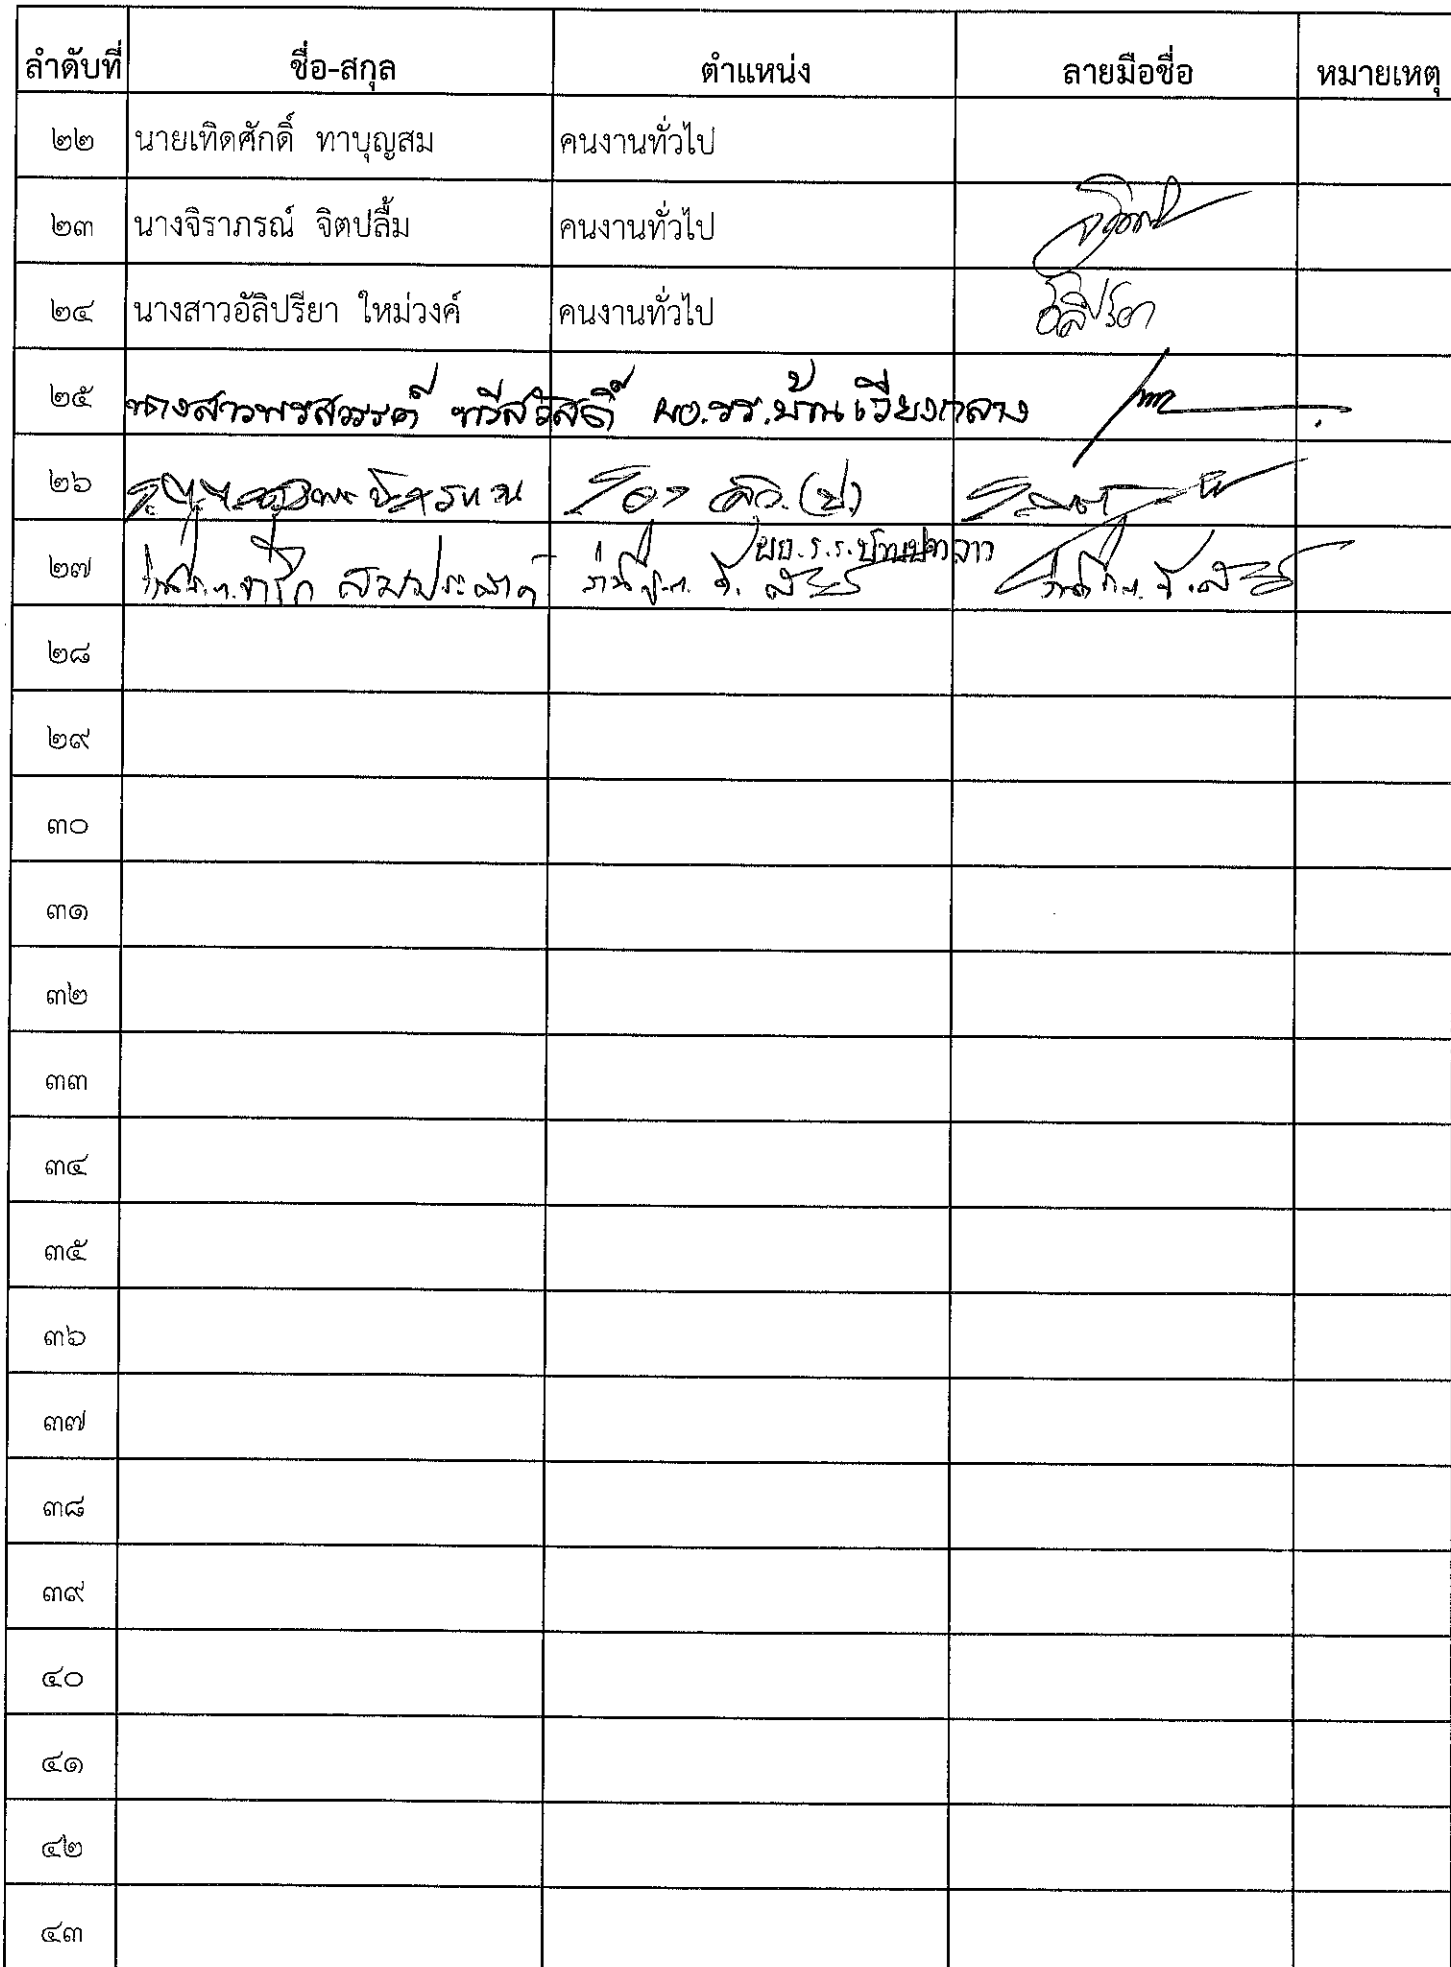 ลำดับที่ ชื่อ-สกุล ตำแหน่ง ลายมือชื่อ หมายเหตุ
๒๒ นายเทิดศักดิ์ ทาบุญสม คนงานทั่วไป
๒๓ นางจิราภรณ์ จิตปลื้ม คนงานทั่วไป
๒๔ นางสาวอัลิปรียา ใหม่วงค์ คนงานทั่วไป อัลิปรียา
๒๕ นางสาวพรสวรรค์ ทวีสวัสดิ์ ผอ.รร.บ้านเวียงกลาง
๒๖
๒๗ ผอ.ร.ร.
๒๘
๒๙
๓๐
๓๑
๓๒
๓๓
๓๔
๓๕
๓๖
๓๗
๓๘
๓๙
๔๐
๔๑
๔๒
๔๓